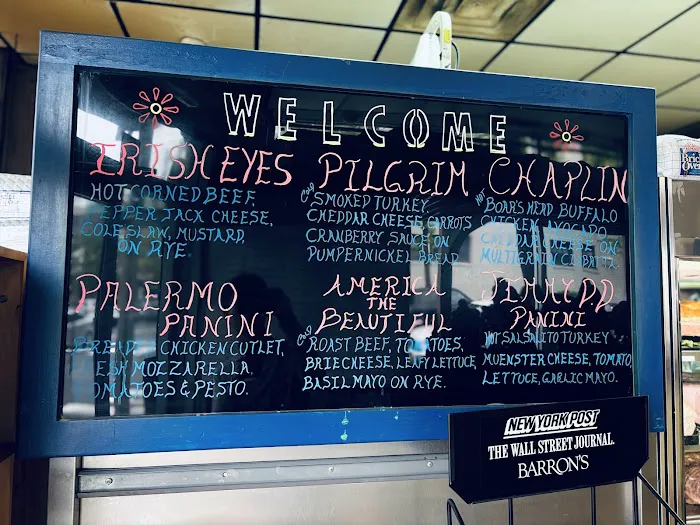 WELCOME
IRISH EYES
HOT CORNED BEEF,
PEPPER JACK CHEESE,
COLE SLAW, MUSTARD,
ON RYE.
PILGRIM
COLD SMOKED TURKEY,
CHEDDAR CHEESE, CARROTS
CRANBERRY SAUCE ON
PUMPERNICKEL BREAD
CHAPLIN
HOT BOAR'S HEAD BUFFALO
CHICKEN, AVOCADO,
CHEDDAR CHEESE ON
MULTIGRAIN CIABATTA
PALERMO
PANINI
BREADED CHICKEN CUTLET,
FRESH MOZZARELLA,
TOMATOES & PESTO.
AMERICA
THE
BEAUTIFUL
COLD ROAST BEEF, TOMATOES,
BRIE CHEESE, LEAFY LETTUCE,
BASIL MAYO ON RYE.
JIMMY DD
PANINI
HOT SALSALITO TURKEY
MUENSTER CHEESE, TOMATO,
LETTUCE, GARLIC MAYO.
NEW YORK POST
THE WALL STREET JOURNAL.
BARRON'S